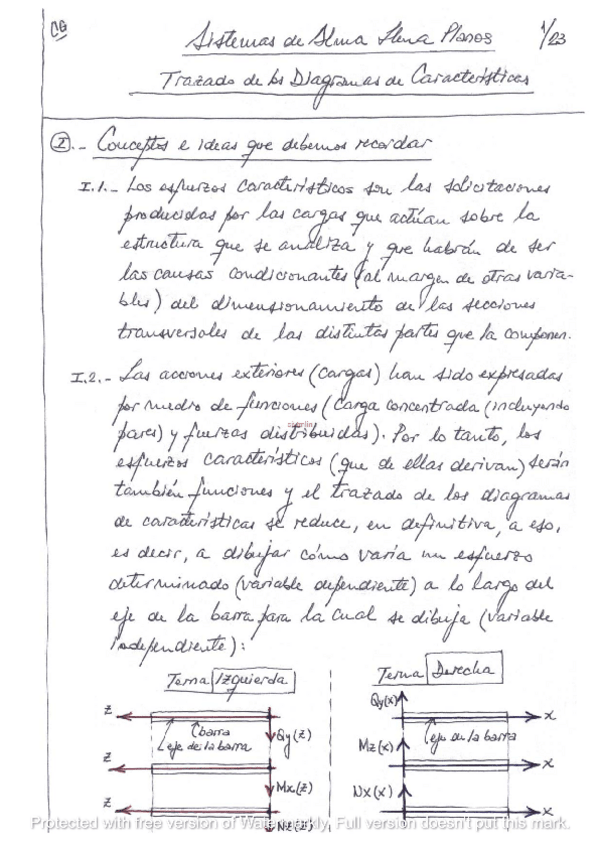 CG
Sistemas de Alma Llena Planos 1/23
Trazado de los Diagramas de Características
I.- Conceptos e ideas que debemos recordar
I.1.- Los esfuerzos característicos son las solicitaciones
producidas por las cargas que actúan sobre la
estructura que se analiza y que habrán de ser
las causas condicionantes (al margen de otras varia-
bles) del dimensionamiento de las secciones
transversales de las distintas partes que la componen.
I.2.- Las acciones exteriores (cargas) han sido expresadas
por medio de funciones (carga concentrada (incluyendo
pares) y fuerzas distribuidas). Por lo tanto, los
esfuerzos característicos (que de ellas derivan) serán
también funciones y el trazado de los diagramas
de características se reduce, en definitiva, a eso,
es decir, a dibujar cómo varía un esfuerzo
determinado (variable dependiente) a lo largo del
eje de la barra para la cual se dibuja (variable
independiente):
Terna Izquierda
Terna Derecha
z
barra
eje de la barra
Qy(z)
Qy(x)
eje de la barra
x
z
Mx(z)
Mz(x)
x
z
Nz(z)
Nx(x)
x
Protected with free version of Watermarkly. Full version doesn't put this mark.